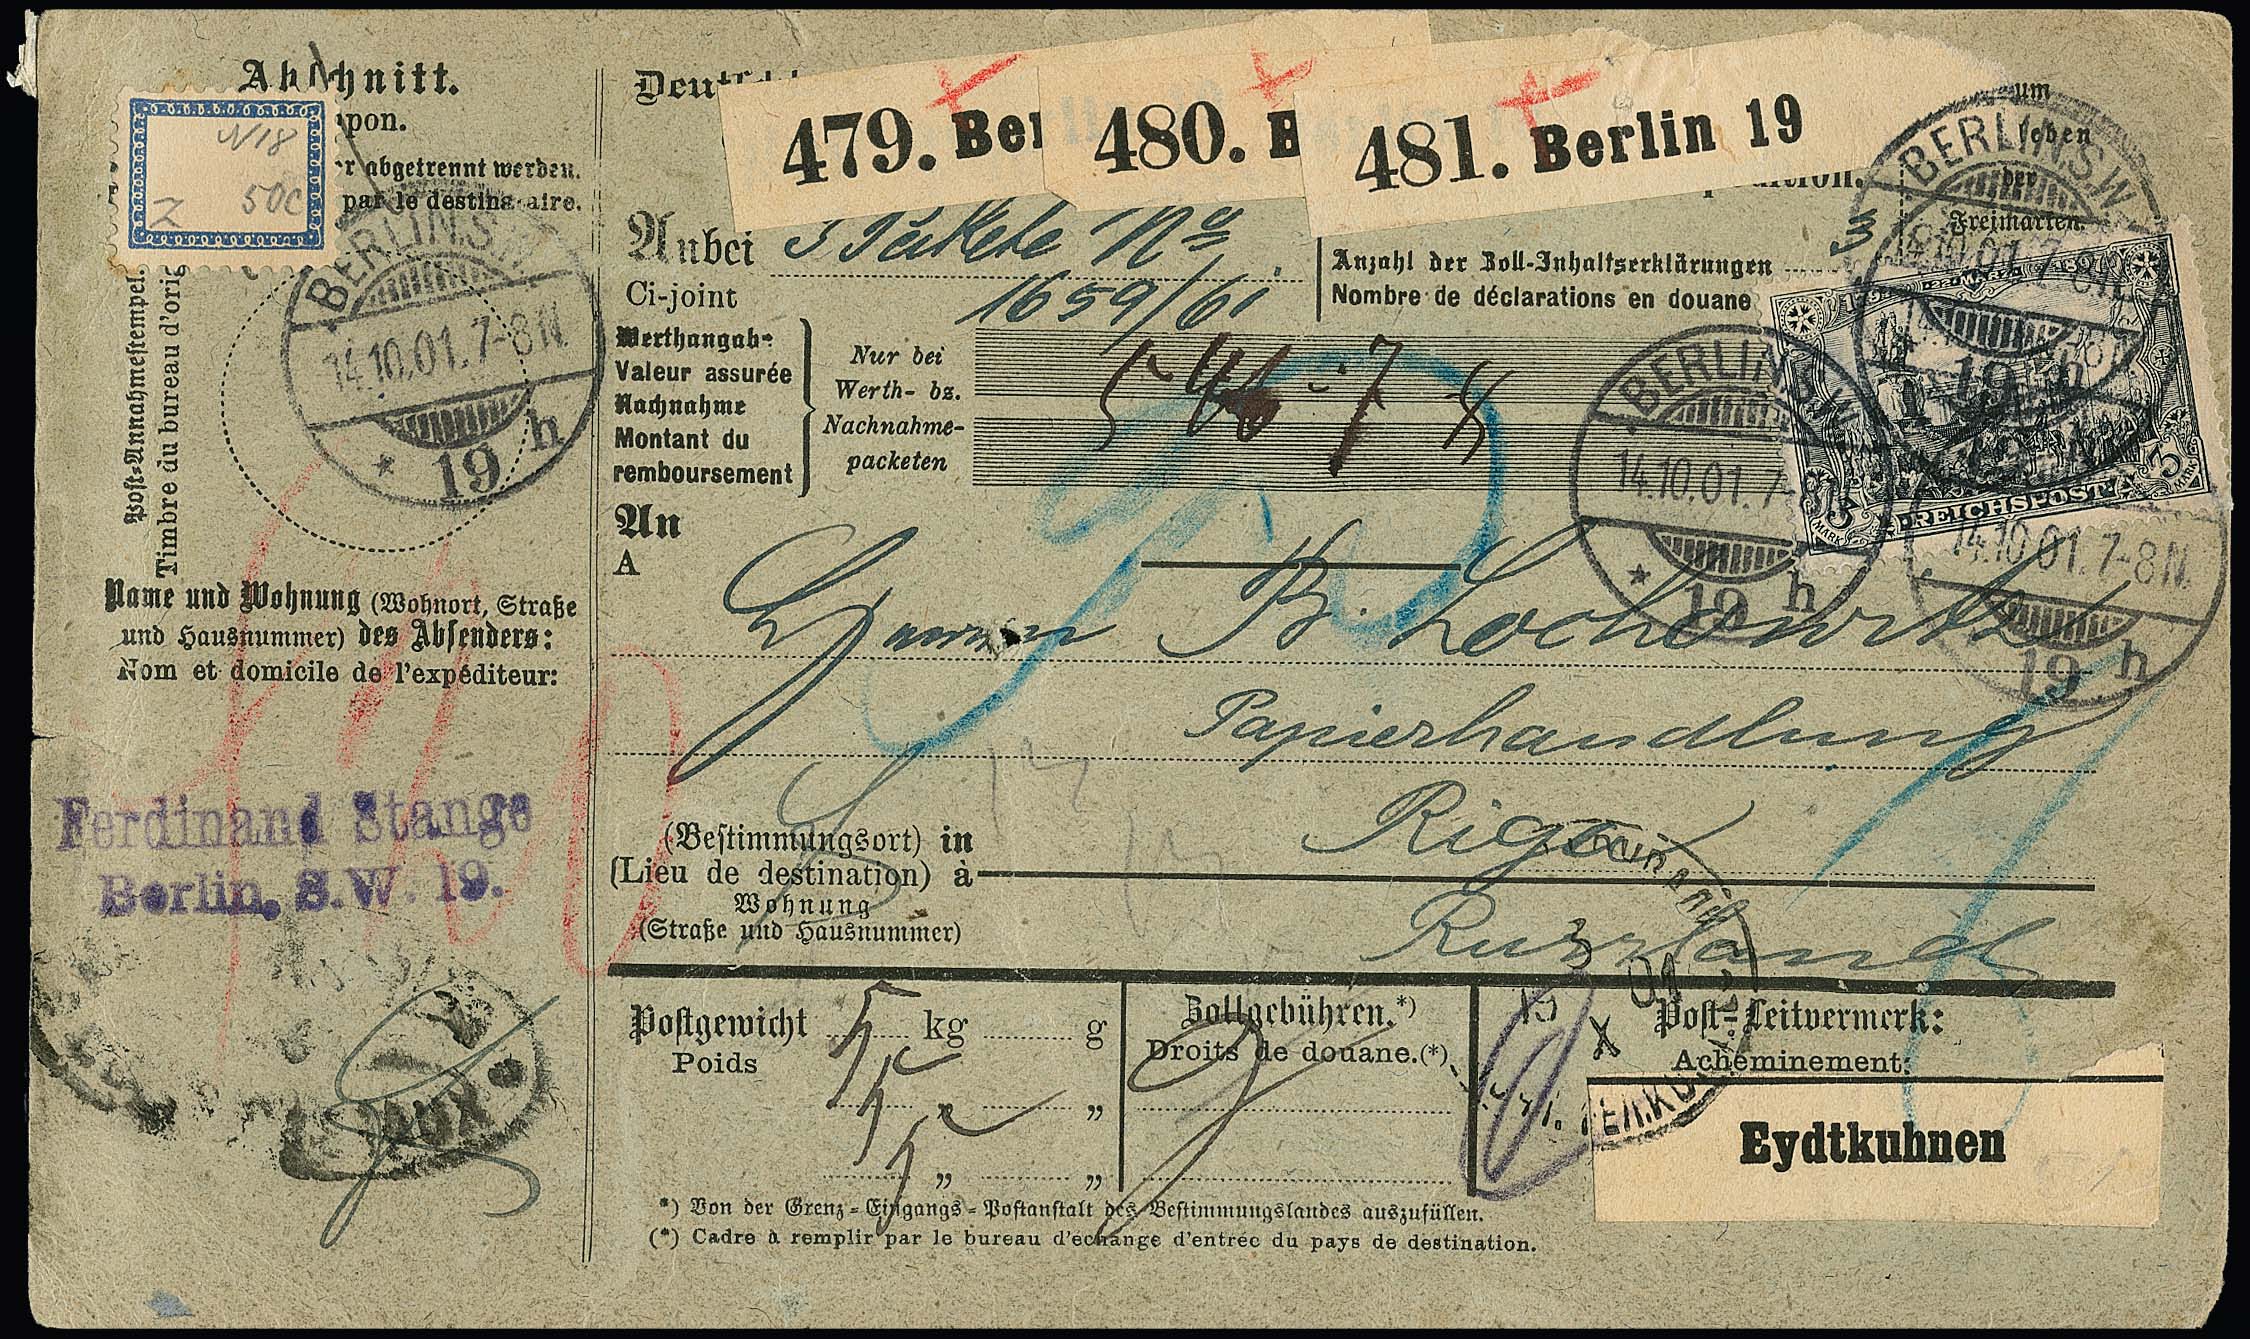 Abschnitt.
pon.
r abgetrennt werden.
par le destinataire.
N18
50c
Z
Post-Annahmestempel.
Timbre du bureau d'orig
BERLIN.S.W.
14.10.01.7-8N.
* 19 h
Name und Wohnung (Wohnort, Straße
und Hausnummer) des Absenders:
Nom et domicile de l'expéditeur:
Ferdinand Stange
Berlin, S.W. 19.
479. Ber
480. B
481. Berlin 19
um
eben
der
Freimarken.
Anbei 3 Pakete No
Ci-joint 1659/61
Anzahl der Zoll-Inhaltserklärungen 3
Nombre de déclarations en douane
Werthangabe
Valeur assurée
Nachnahme
Montant du
remboursement
Nur bei
Werth- bz.
Nachnahme-
packeten
BERLIN.S.W.
14.10.01.7-8N.
* 19 h
BERLIN.S.W.
14.10.01.7-8N.
19 h
14.10.01.7-8N.
19 h
3 MARK REICHSPOST 3 MARK
An
A
B. Lochowitz
Papierhandlung
(Bestimmungsort) in Riga
(Lieu de destination) à
Wohnung
(Straße und Hausnummer)
Russland
Postgewicht 5 kg g
Poids
5 „ „
5 „ „
Zollgebühren.*)
Droits de douane.(*)
Post-Leitvermerk:
Acheminement:
Eydtkuhnen
*) Von der Grenz-Eingangs-Postanstalt des Bestimmungslandes auszufüllen.
(*) Cadre à remplir par le bureau d'échange d'entrée du pays de destination.